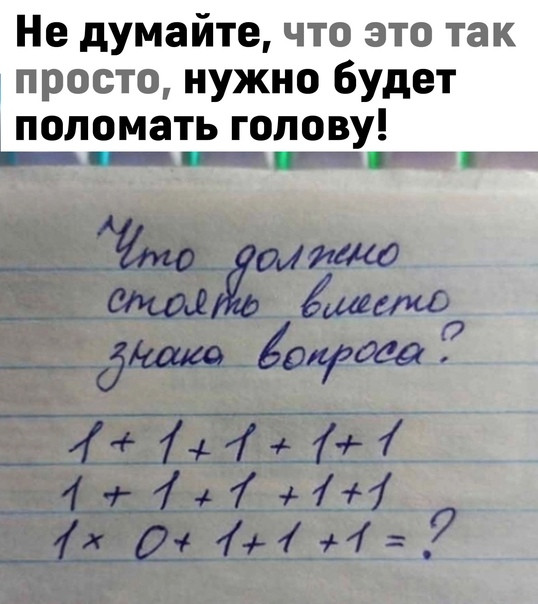 Не думайте, что это так
просто, нужно будет
поломать голову!
Что должно
стоять вместо
знака вопроса?
1 + 1 + 1 + 1 + 1
1 + 1 + 1 + 1 + 1
1 × 0 + 1 + 1 + 1 = ?